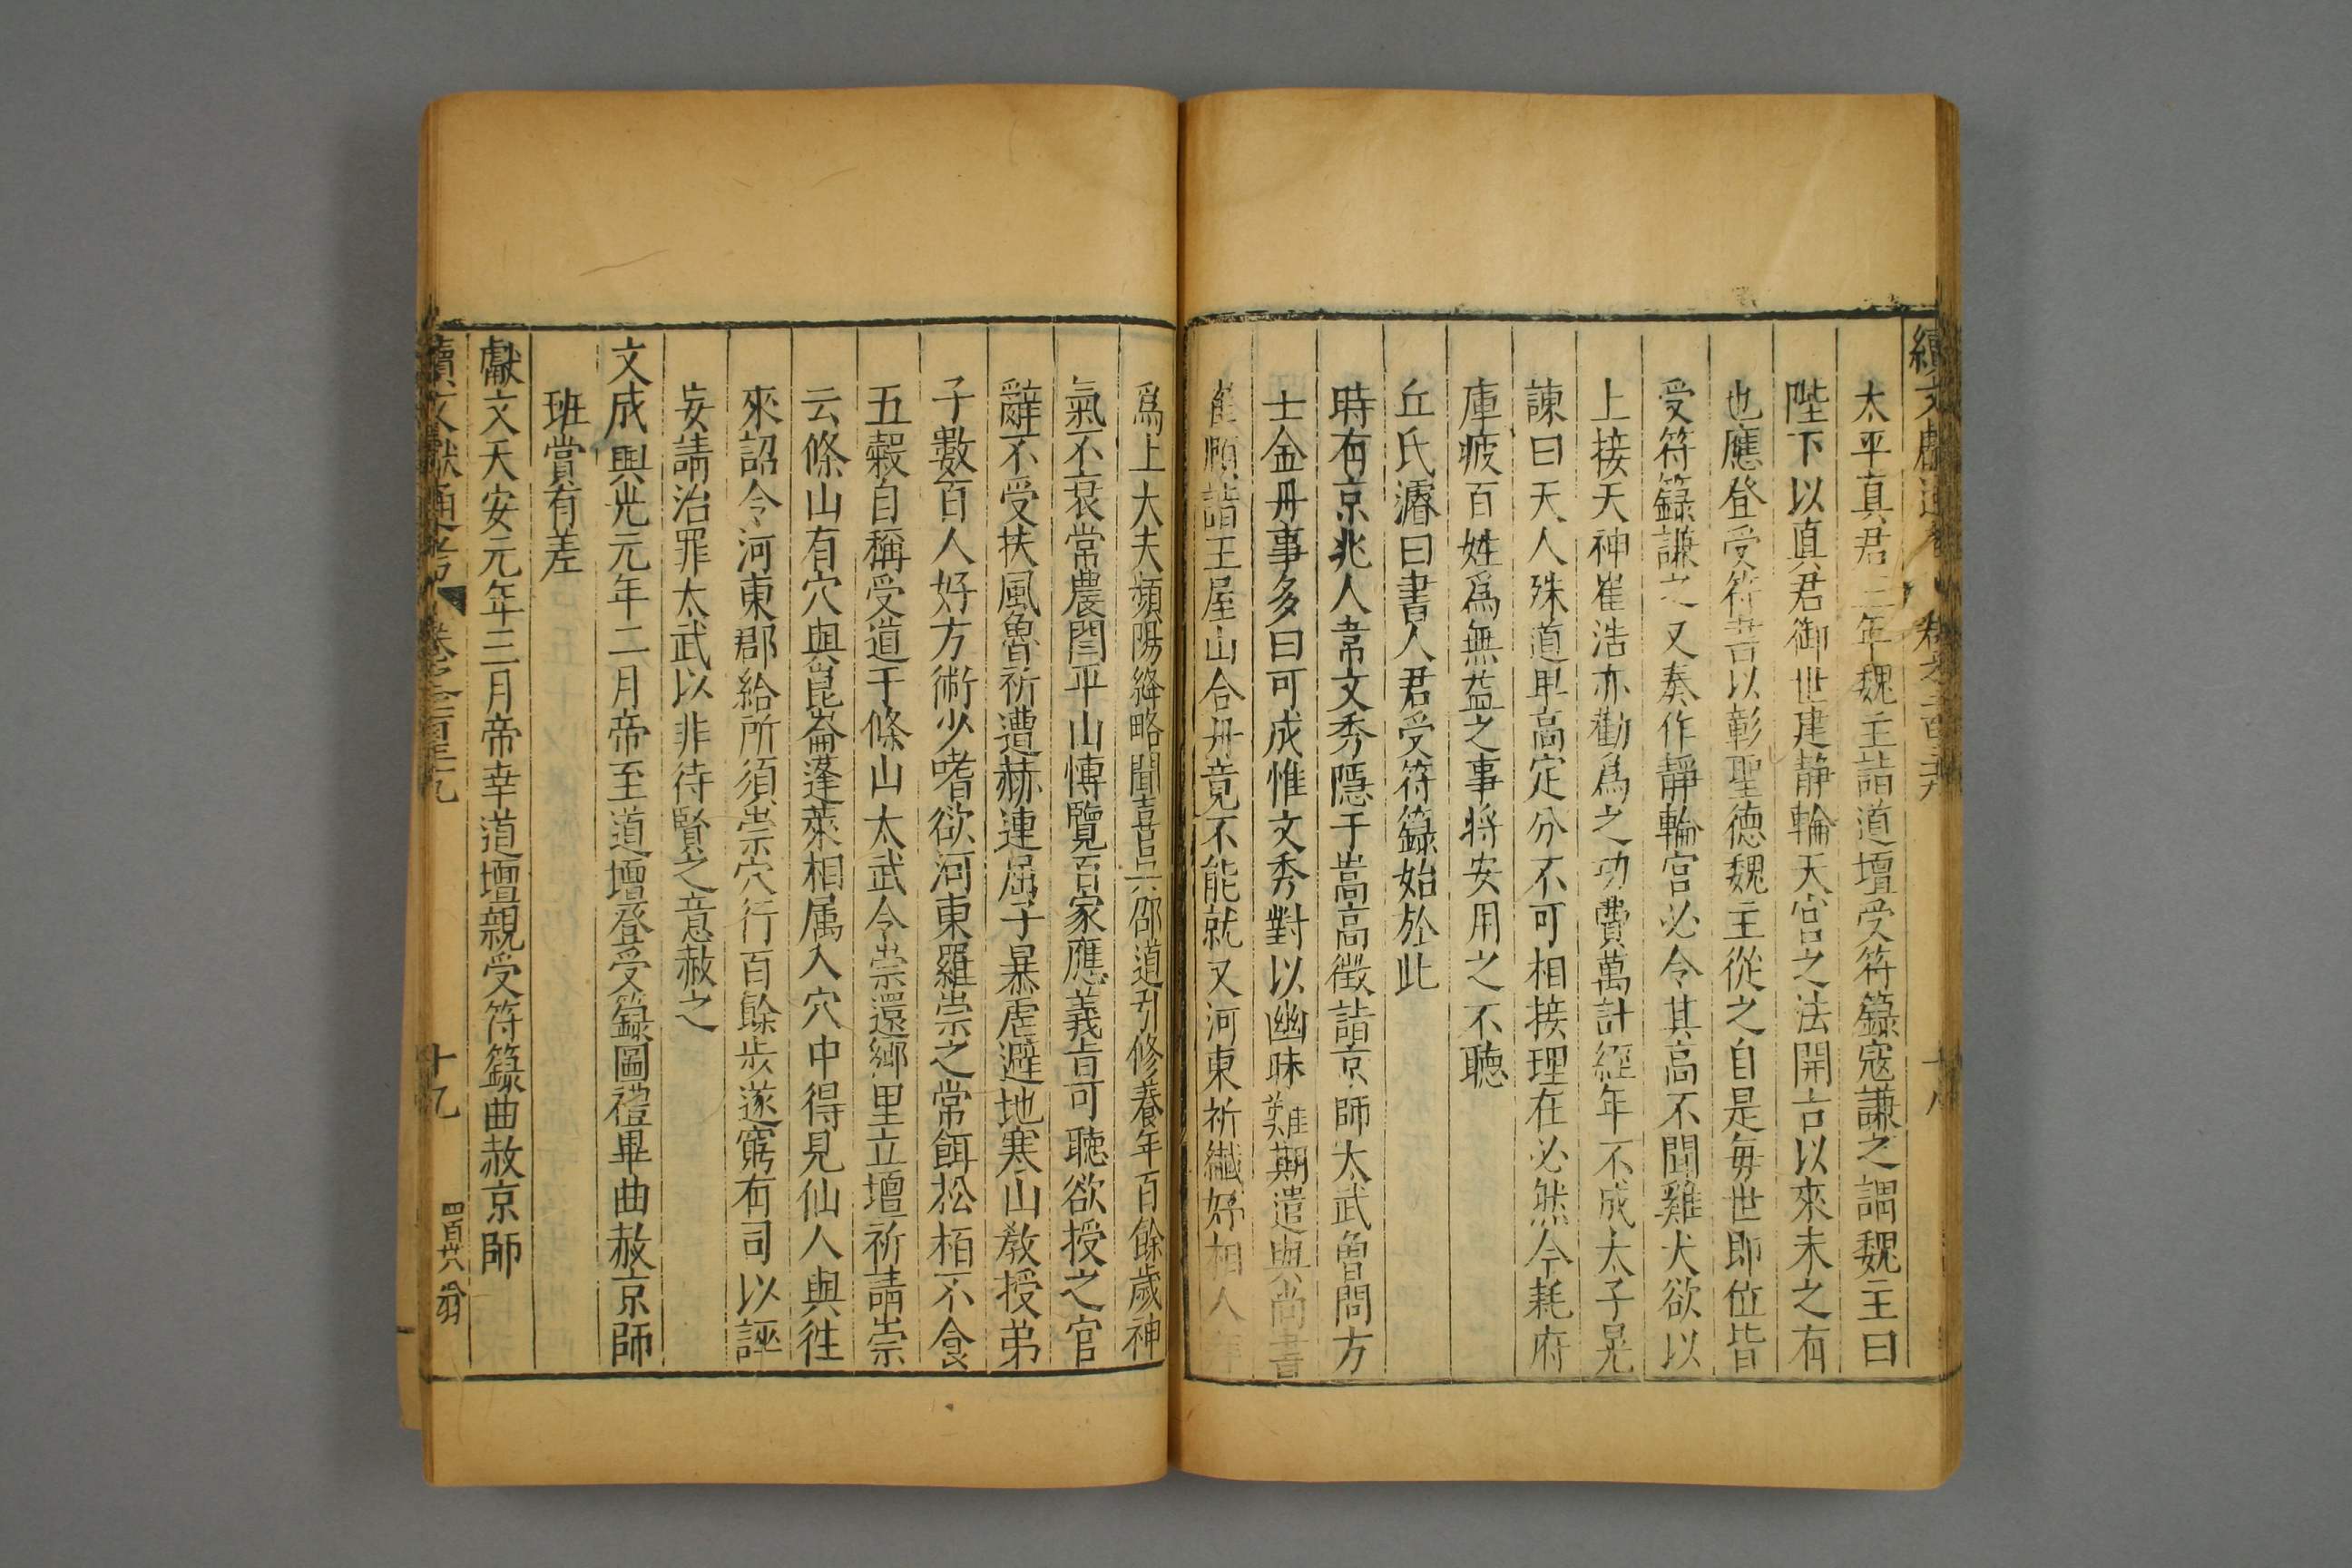 續文獻通考 卷之二百三九 十八
太平真君三年魏主詣道壇受符籙寇謙之謂魏主曰
陛下以真君御世建静輪天宮之法開古以來未之有
也應登受符書以彰聖德魏主從之自是每世即位皆
受符籙謙之又奏作靜輪宮必令其高不聞雞犬欲以
上接天神崔浩亦勸爲之功費萬計經年不成太子晃
諫曰天人殊道卑高定分不可相接理在必然今耗府
庫疲百姓爲無益之事將安用之不聽
丘氏濬曰書人君受符籙始於此
時有京兆人韋文秀隱于嵩高徵詣京師太武魯問方
士金丹事多曰可成惟文秀對以幽昧難期遣與尚書
崔頤詣王屋山合丹竟不能就又河東祈纎好相人拜
爲上大夫頻陽絳略聞喜吕邵道引修養年百餘歲神
氣不衰常農閻平山愽覽百家應義旨可聽欲授之官
辭不受扶風魯祈遭赫連屈子暴虐避地寒山教授弟
子數百人好方術少嗜欲河東羅崇之常餌松栢不食
五穀自稱受道于條山太武令崇還鄉里立壇祈請崇
云條山有穴與崑崙蓬萊相属入穴中得見仙人與徃
來詔令河東郡給所須崇穴行百餘步遂窮有司以誣
妄請治罪太武以非待賢之意赦之
文成興光元年二月帝至道壇登受籙圖禮畢曲赦京師
班賞有差
獻文天安元年三月帝幸道壇親受符籙曲赦京師
續文獻通考 卷之二百三九 十九 四百廿八 翁